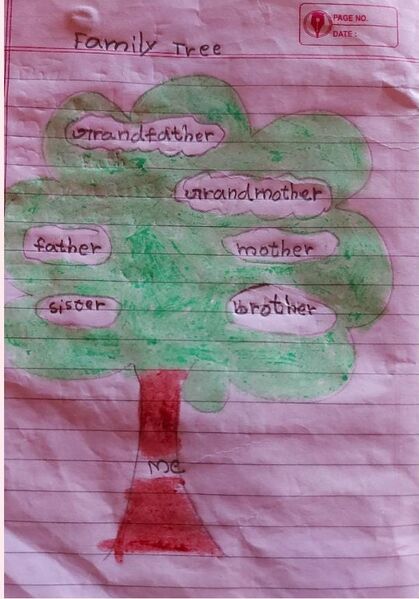 PAGE NO.
DATE :
Family Tree
Grandfather
Grandmother
father
mother
sister
brother
Me